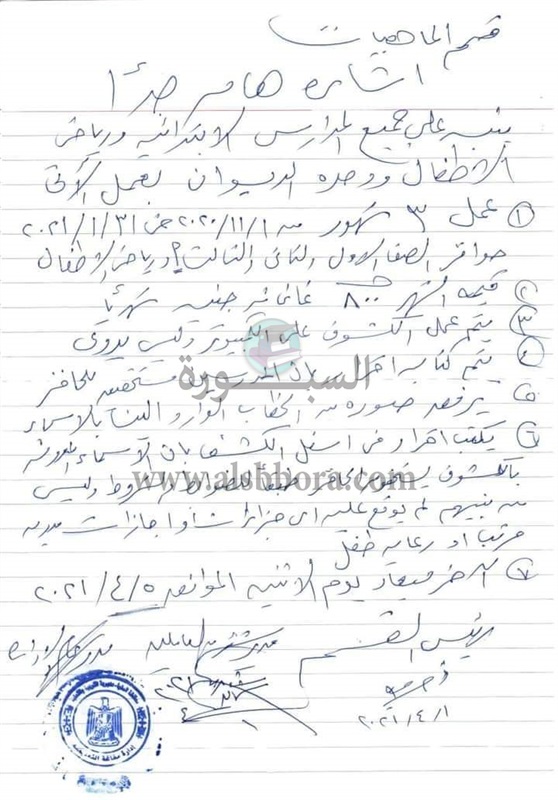 قسم الماهيات
اشارة هامة جدًا
ينبه على جميع المدارس الابتدائية ورياض
الاطفال ووحدة الديوان بعمل الآتى
① عمل ٣ شهور من ٢٠٢٠/١١/١ حتى ٢٠٢١/١/٣١
حوافز الصف الاول والثانى والثالث ورياض الاطفال
② قيمة الشهر ٨٠٠ ثمانمائة جنيه شهريًا
③ يتم عمل الكشوف على الكمبيوتر وليس يدوى
④ يتم كتابة اقرار بأن المدرسين مستحقين للحافز
⑤ يرفق صورة من الخطاب الوارد الينا بالاسماء
⑥ يكتب اقرار فى اسفل الكشف بان الاسماء المدونة
بالكشوف الحافز طبقا للضوابط والشروط وليس
من بينهم لم يوقع عليه اى جزاءات او اجازات بدون
مرتب او رعاية طفل
⑦ آخر ميعاد يوم الاثنين الموافق ٢٠٢١/٤/٥
رئيس القسم
٢٠٢١/٤/١
السبورة
www.alsbbora.com